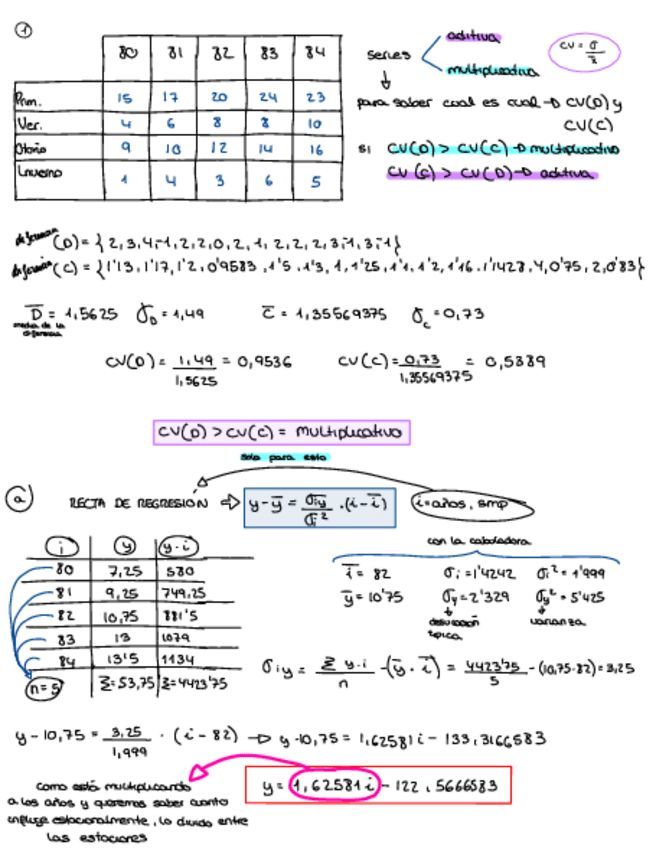 ①
80 81 82 83 84
Prim. 15 17 20 24 23
Ver. 4 6 8 8 10
Otoño 9 10 12 14 16
Invierno 1 4 3 6 5
series
aditiva
multiplicativa
CV = σ / x̄
para saber cual es cual → CV(D) y CV(C)
si CV(D) > CV(C) → multiplicativo
CV(C) > CV(D) → aditiva
(D) = {2, 3, 4, -1, 2, 2, 0, 2, 1, 2, 2, 2, 3, -1, 3, -1}
(C) = {1'13, 1'17, 1'2, 0'9583, 1'5, 1'3, 1, 1'25, 1'1, 1'2, 1'16, 1'1428, 4, 0'75, 2, 0'83}
D̄ = 1,5625 σD = 1,49 C̄ = 1,35569375 σc = 0,73
media de la diferencia
CV(D) = 1,49 / 1,5625 = 0,9536 CV(C) = 0,73 / 1,35569375 = 0,5389
CV(D) > CV(C) = multiplicativo
solo para esto
ⓐ RECTA DE REGRESIÓN ⇒ y - ȳ = σiy / σi² · (i - ī) i = años, smp
i y y·i
80 7,25 580
81 9,25 749,25
82 10,75 881'5
83 13 1079
84 13'5 1134
n = 5 Σ = 53,75 Σ = 4423'75
con la calculadora
ī = 82 σi = 1'4242 σi² = 1'999
ȳ = 10'75 σy = 2'329 σy² = 5'425
desviación típica
varianza
σiy = Σ y·i / n - (ȳ · ī) = 4423'75 / 5 - (10,75·82) = 3,25
y - 10,75 = 3,25 / 1,999 · (i - 82) → y - 10,75 = 1,62581i - 133,3166583
y = 1,62581i - 122,5666583
como está multiplicando
a los años y queremos saber cuanto
influye estacionalmente, lo divido entre
las estaciones